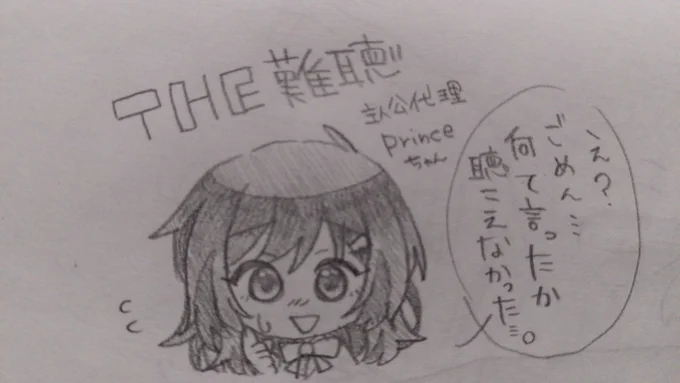 THE難聴
主人公代理
prince
ちゃん
え?
ごめん…
何て言ったか
聴こえなかった…。